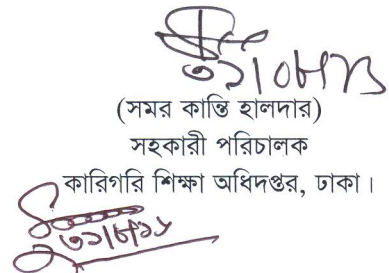 (সমর কান্তি হালদার)
সহকারী পরিচালক
কারিগরি শিক্ষা অধিদপ্তর, ঢাকা।